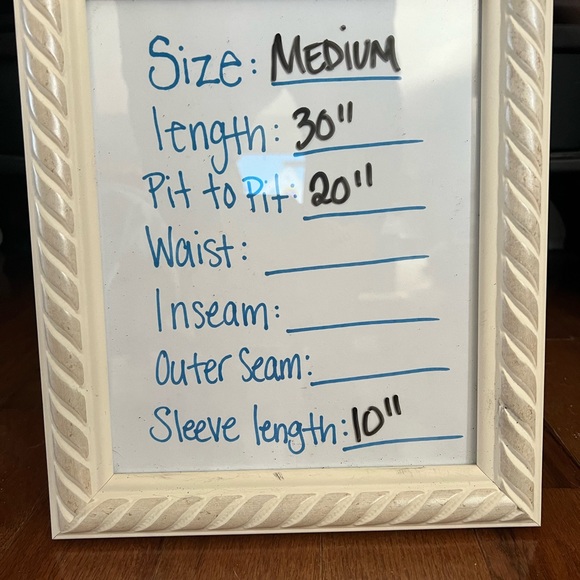 Size: MEDIUM
length: 30"
Pit to Pit: 20"
Waist:
Inseam:
Outer Seam:
Sleeve length: 10"